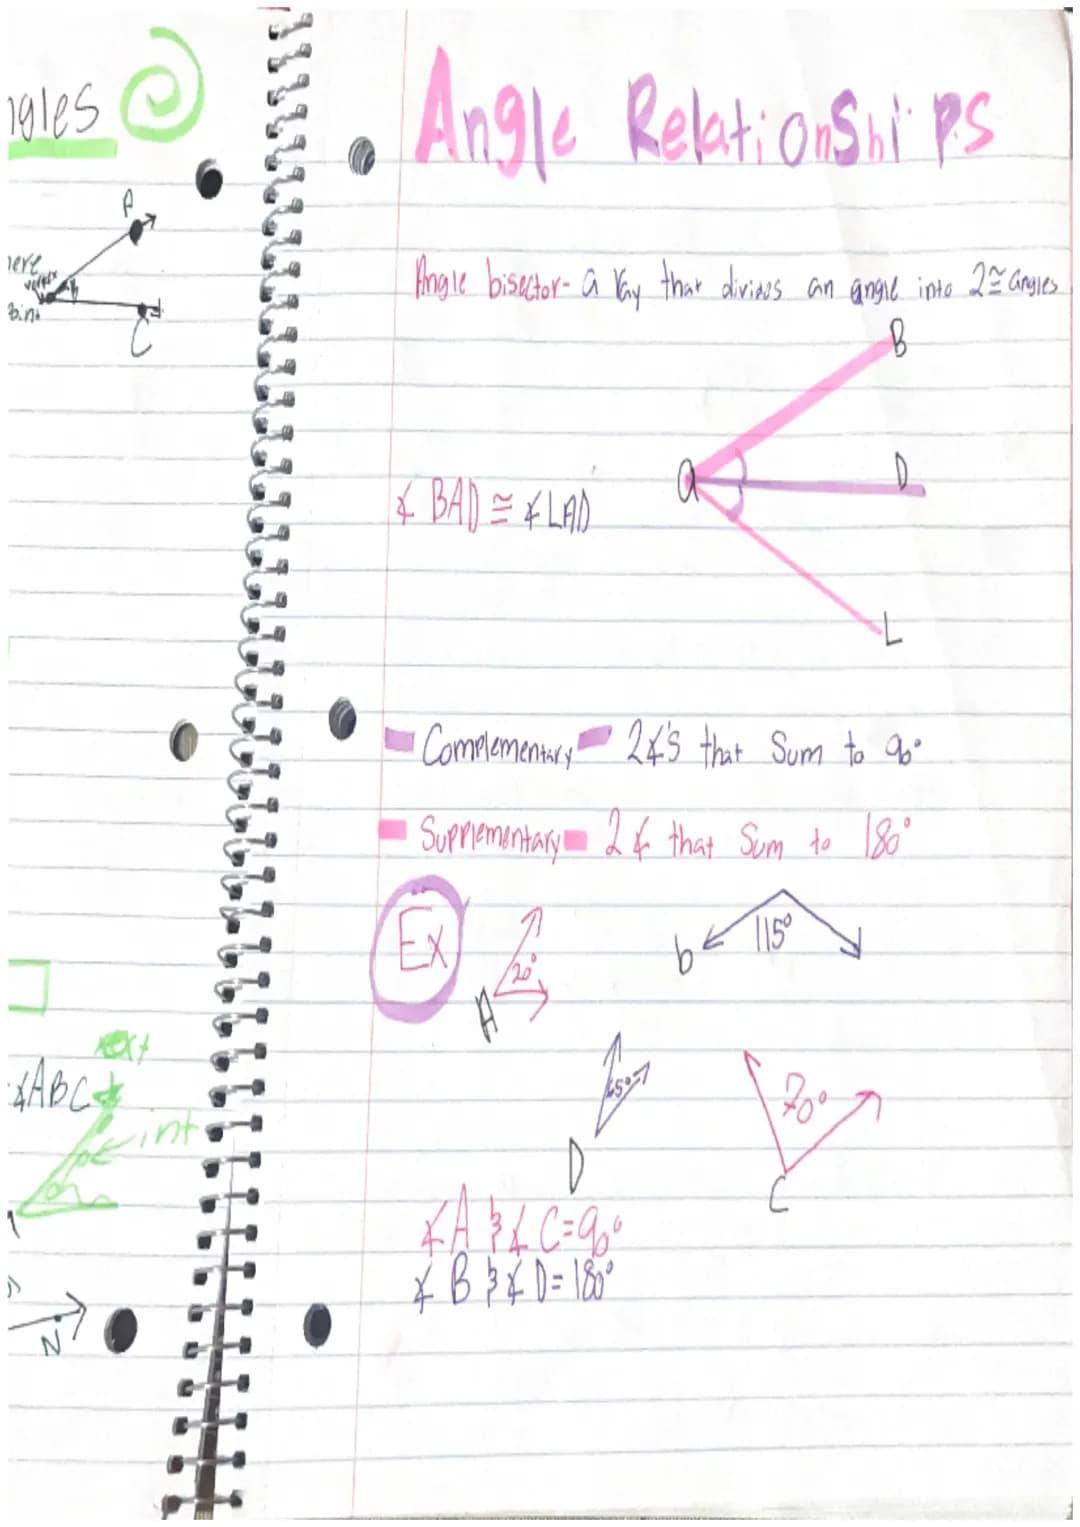 ngles
A
here
vertex
point
C
∡ABC
ext
int
N
Angle Relationships
Angle bisector- a ray that divides an angle into 2≅ angles
B
a
D
∡ BAD ≅ ∡LAD
L
Complementary 2∡'s that Sum to 90°
Supplementary 2∡ that Sum to 180°
Ex
20°
A
b
115°
D
70°
C
∡A & ∡ C=90°
∡ B & ∡ D= 180°